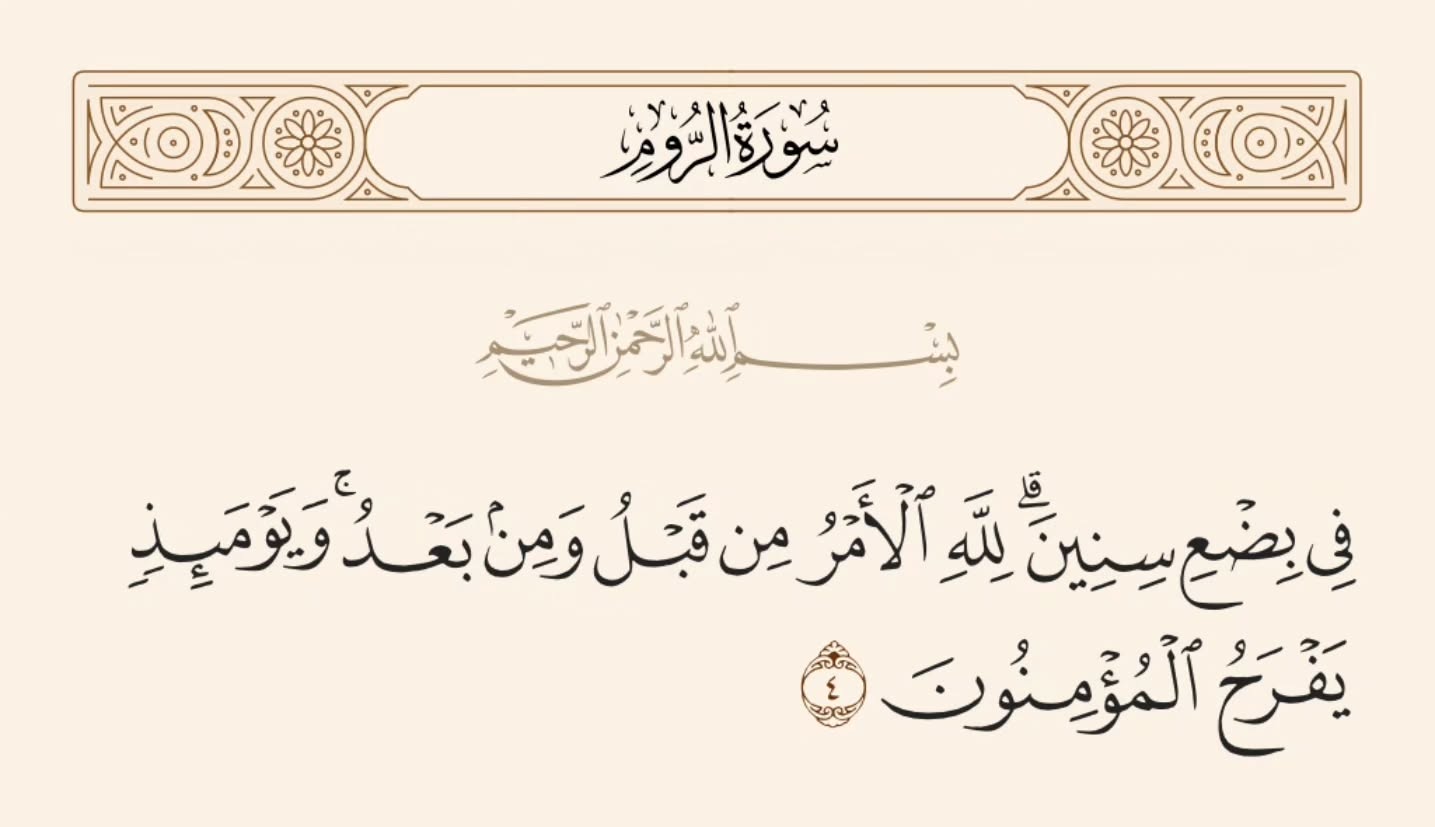 سُورَةُ الرُّومِ
بِسْمِ ٱللَّهِ ٱلرَّحْمَٰنِ ٱلرَّحِيمِ
فِى بِضْعِ سِنِينَ ۗ لِلَّهِ ٱلْأَمْرُ مِن قَبْلُ وَمِنۢ بَعْدُ ۚ وَيَوْمَئِذٍ
يَفْرَحُ ٱلْمُؤْمِنُونَ ٤